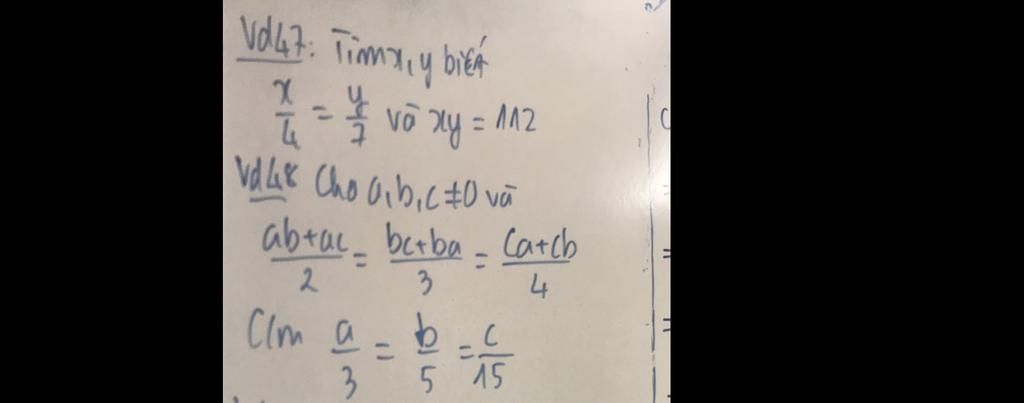 Vd47: Tìm x, y biết
x/4 = y/7 và xy = 112
Vd48 Cho a, b, c ≠ 0 và
ab+ac/2 = bc+ba/3 = ca+cb/4
C/m a/3 = b/5 = c/15